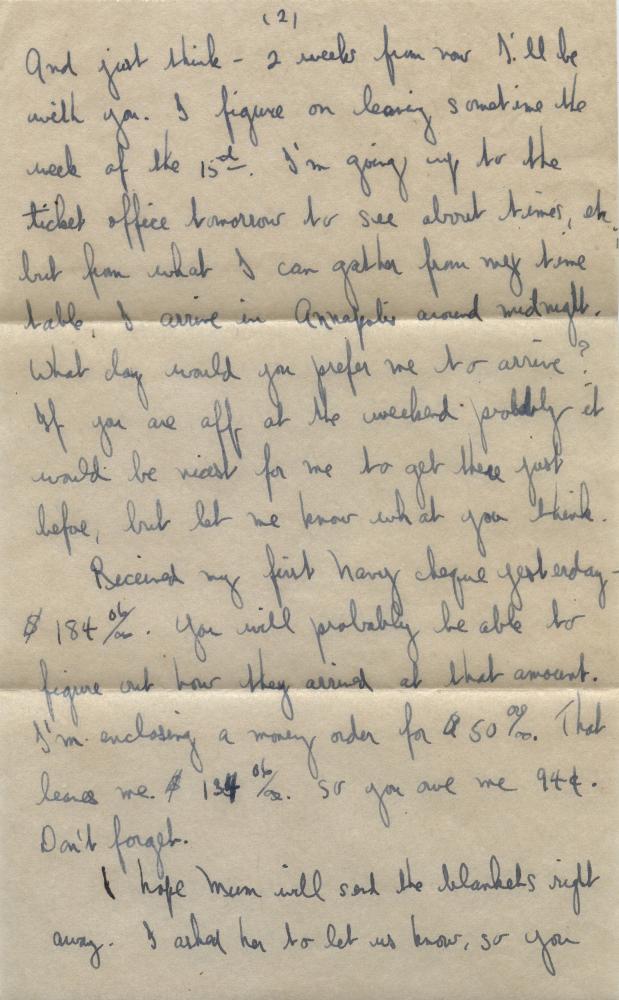 (2)
And just think - 2 weeks from now I'll be
with you. I figure on leaving sometime the
week of the 15th. I'm going up to the
ticket office tomorrow to see about times, etc.
but from what I can gather from my time
table, I arrive in Annapolis around midnight.
What day would you prefer me to arrive?
If you are off at the weekend probably it
would be nicest for me to get there just
before, but let me know what you think.
Received my first Navy cheque yesterday -
$ 184 06/00. You will probably be able to
figure out how they arrived at that amount.
I'm enclosing a money order for $ 50 00/00. That
leaves me $ 134 06/00. so you owe me 94¢.
Don't forget.
I hope Mum will send the blankets right
away. I asked her to let us know, so you